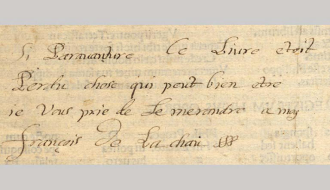 si Par avanture Ce Livre etoit
Perdu chose qui peut bien etre
ie Vous prie de Le me rendre a moy
françois De La chai